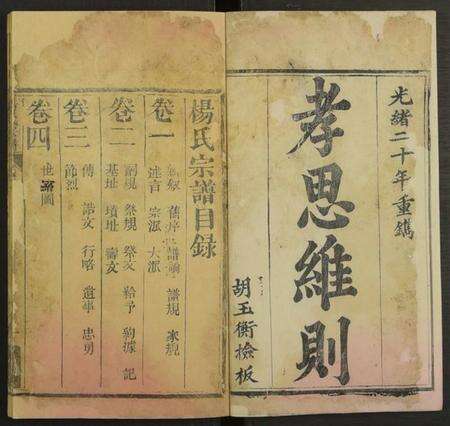 光緒二十年重鐫
孝思維則
胡玉衡檢板
楊氏宗譜目録
卷一
舊序 譜規 家規
述言 宗派 大派
卷二
祠規 祭規 祭文 給予 記
基址 墳址 壽文
卷三
傳 誥文 行略 遺事 忠勇
節烈
卷四
世圖